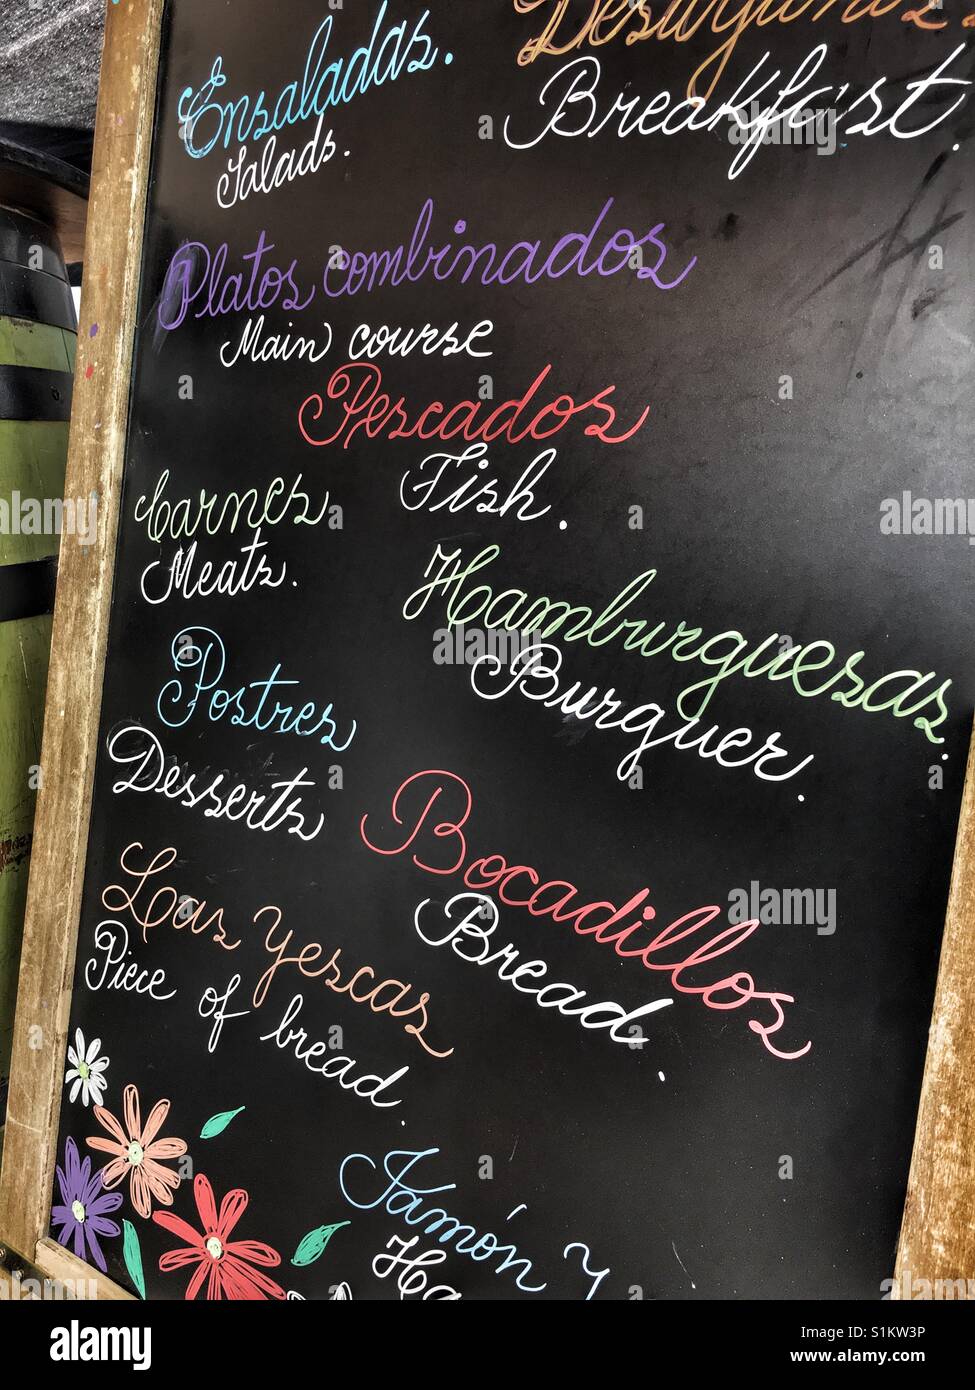 Ensaladas.
Salads.
Desayunos.
Breakfast.
Platos combinados
Main course
Pescados
Fish.
Carnes
Meats.
Hamburguesas.
Burguer.
Postres
Desserts
Bocadillos
Bread.
Las Yescas
Piece of bread.
Jamón Y
Ha
alamy stock photo
alamy
Image ID: S1KW3P
www.alamy.com